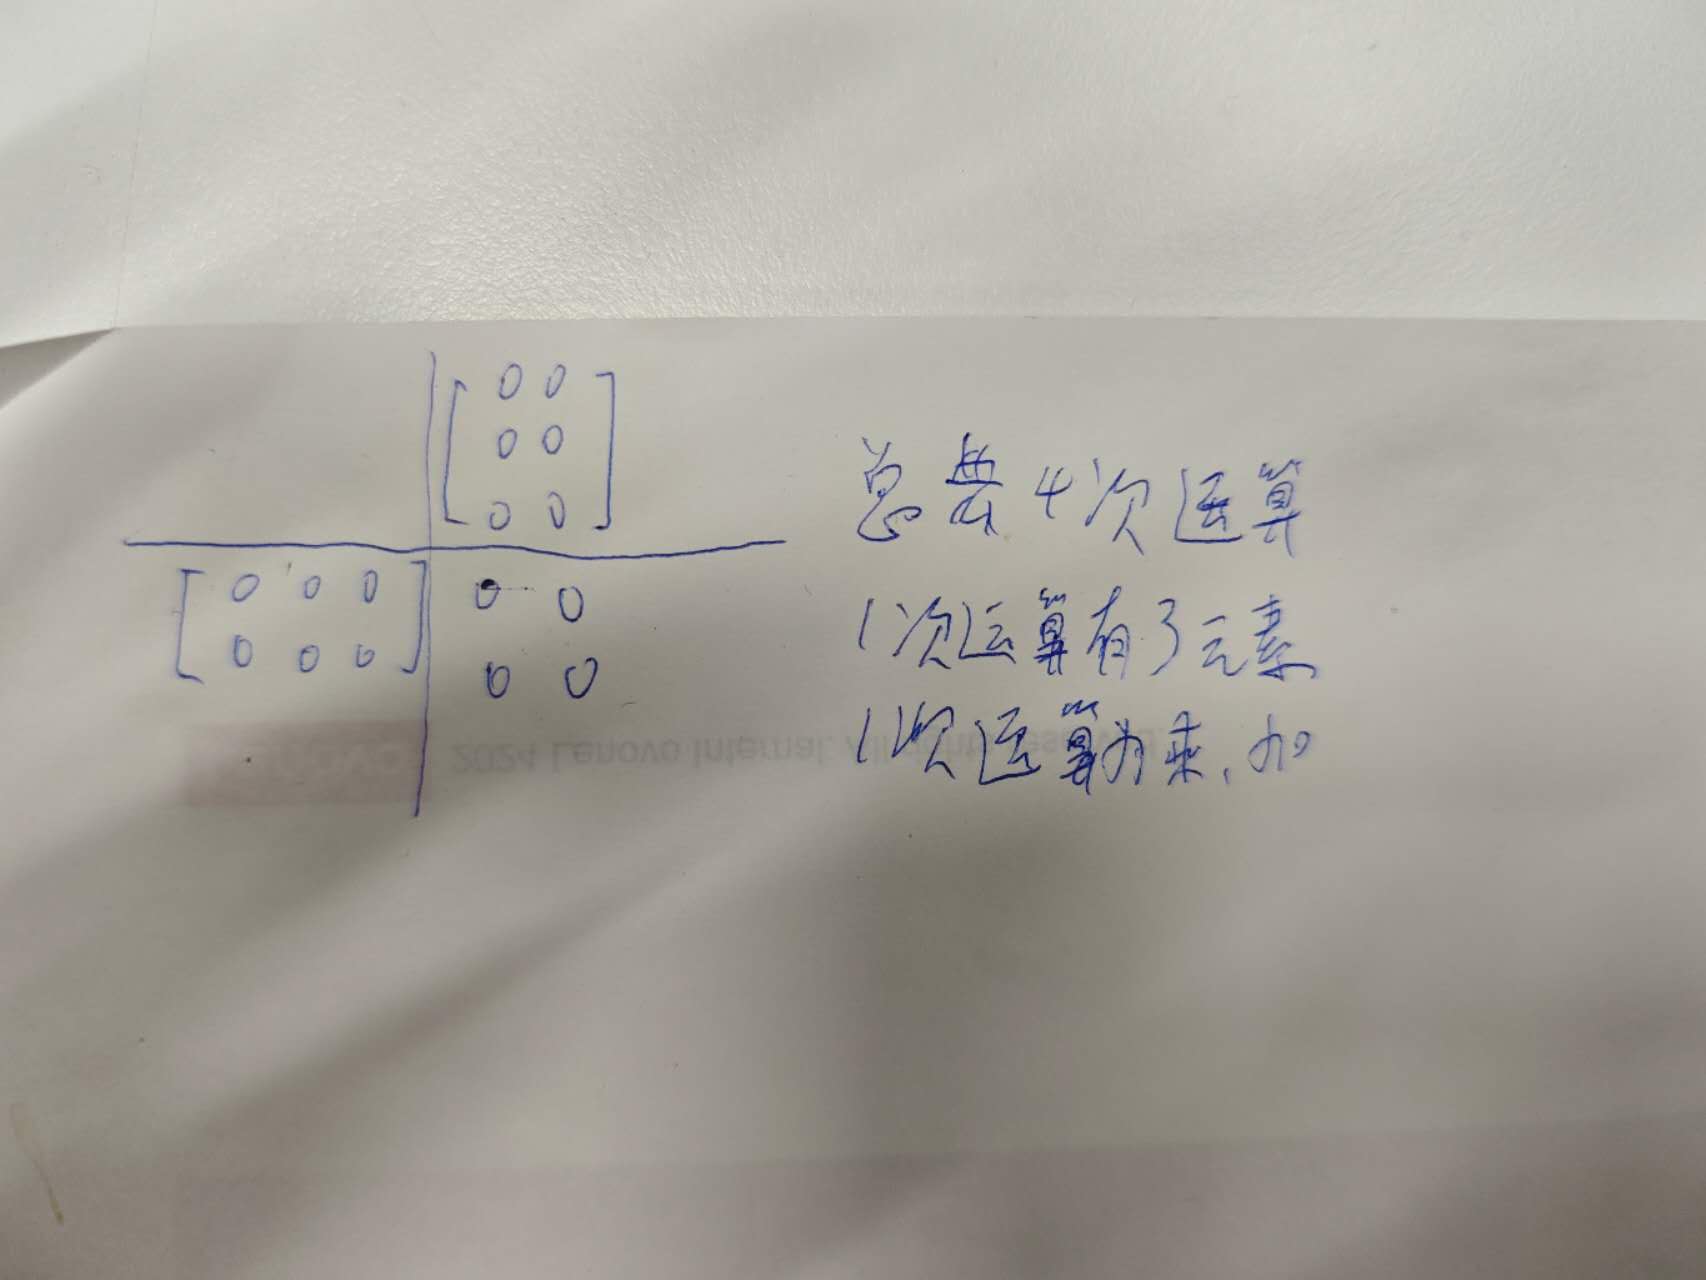 0 0
0 0
0 0
0 0 0
0 0 0
0 0
0 0
总共4次运算
1次运算有3元素
1次运算为乘、加
2024 Lenovo Internal. All rights reserved.